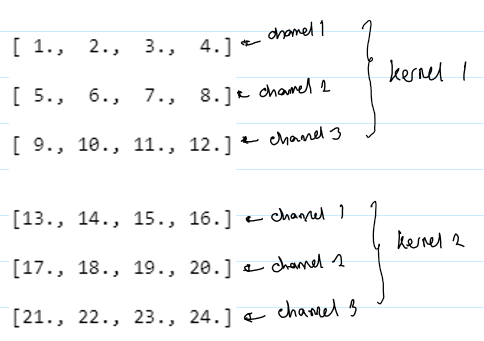 [ 1., 2., 3., 4.] ← channel 1
kernel 1
[ 5., 6., 7., 8.] ← channel 2
[ 9., 10., 11., 12.] ← channel 3
[13., 14., 15., 16.] ← channel 1
kernel 2
[17., 18., 19., 20.] ← channel 2
[21., 22., 23., 24.] ← channel 3